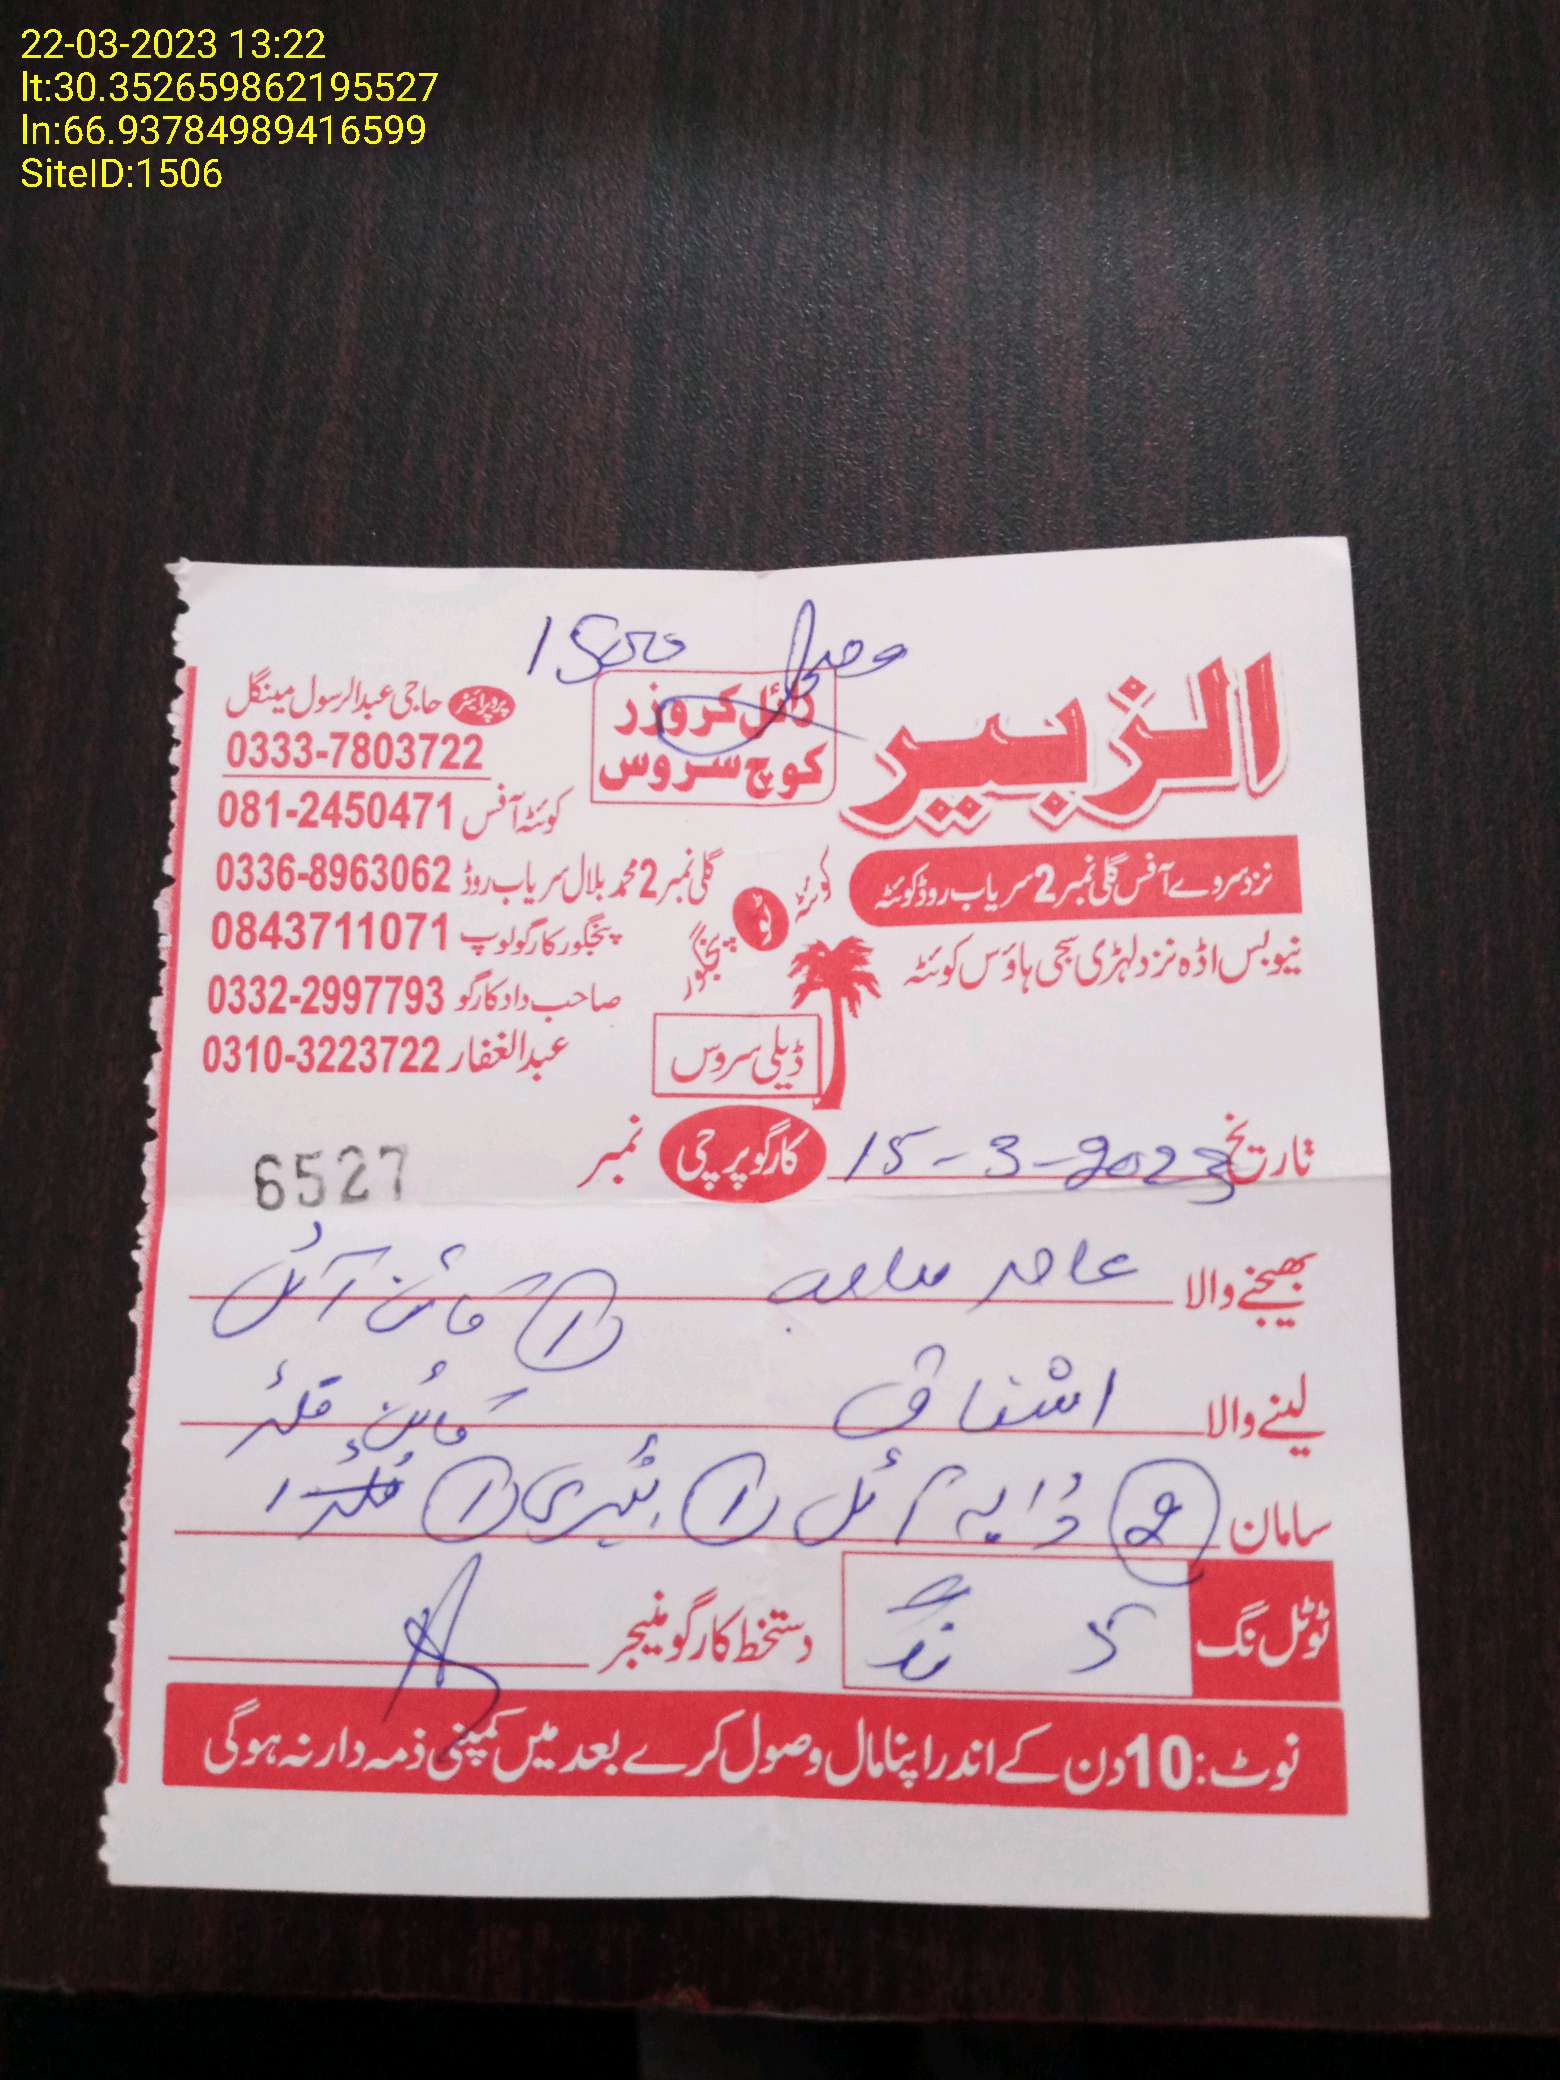 22-03-2023 13:22
lt:30.352659862195527
ln:66.93784989416599
SiteID:1506
1500 وصول
الزبیر
رائل کروزر
کوچ سروس
پروپرائیٹر حاجی عبدالرسول مینگل
0333-7803722
کوئٹہ آفس 081-2450471
گلی نمبر 2 محمد بلال سریاب روڈ 0336-8963062
پنجگور کارگو لوپ 0843711071
صاحب داد کارگو 0332-2997793
عبدالغفار 0310-3223722
نزد سروے آفس گلی نمبر 2 سریاب روڈ کوئٹہ
نیو بس اڈہ نزد لہڑی سجی ہاؤس کوئٹہ
کوئٹہ ٹو پنجگور
ڈیلی سروس
تاریخ 15-3-2023 کارگو پرچی نمبر 6527
بھیجنے والا عامر صاحب 1 آئل
لینے والا اشفاق فلٹر
سامان 2 آئل 1 بیٹری 1
ٹوٹل نگ 5 نگ دستخط کارگو منیجر
نوٹ: 10 دن کے اندر اپنا مال وصول کرے بعد میں کمپنی ذمہ دار نہ ہوگی